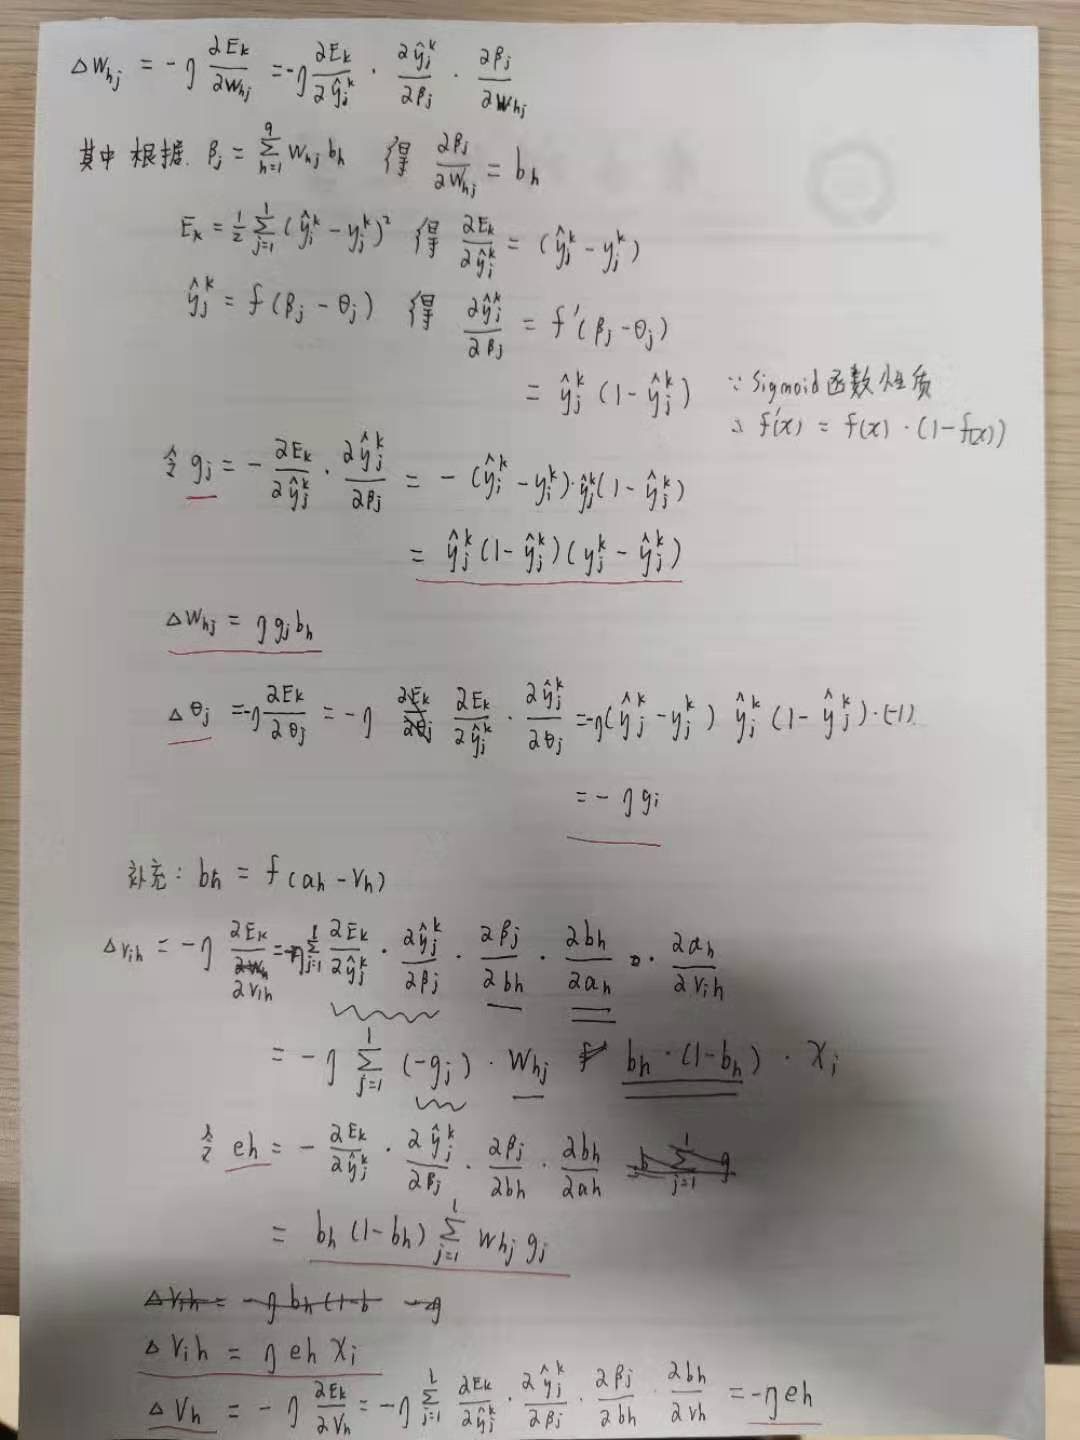 △Whj = -η ∂Ek/∂Whj = -η ∂Ek/∂ŷj^k · ∂ŷj^k/∂βj · ∂βj/∂Whj
其中 根据. βj = Σ(h=1→q) Whj bh 得 ∂βj/∂Whj = bh
Ek = 1/2 Σ(j=1→l) (ŷj^k - yj^k)² 得 ∂Ek/∂ŷj^k = (ŷj^k - yj^k)
ŷj^k = f(βj - θj) 得 ∂ŷj^k/∂βj = f'(βj - θj)
= ŷj^k (1 - ŷj^k) ∵ Sigmoid函数性质
∴ f'(x) = f(x)·(1-f(x))
令 gj = - ∂Ek/∂ŷj^k · ∂ŷj^k/∂βj = - (ŷj^k - yj^k)·ŷj^k(1 - ŷj^k)
= ŷj^k (1 - ŷj^k)(yj^k - ŷj^k)
△Whj = η gj bh
△θj = -η ∂Ek/∂θj = -η ∂Ek/∂ŷj^k · ∂ŷj^k/∂θj = -η(ŷj^k - yj^k) ŷj^k (1 - ŷj^k)·(-1).
= -η gj
补充: bh = f(ah - Vh)
△Vih = -η ∂Ek/∂Vih = -η Σ(j=1→l) ∂Ek/∂ŷj^k · ∂ŷj^k/∂βj · ∂βj/∂bh · ∂bh/∂ah · ∂ah/∂Vih
= -η Σ(j=1→l) (-gj) · Whj bh·(1-bh) · Xi
令 eh = - ∂Ek/∂ŷj^k · ∂ŷj^k/∂βj · ∂βj/∂bh · ∂bh/∂ah
= bh (1-bh) Σ(j=1→l) Whj gj
△Vih = -η bh (1-b
△Vih = η eh Xi
△Vh = -η ∂Ek/∂Vh = -η Σ(j=1→l) ∂Ek/∂ŷj^k · ∂ŷj^k/∂βj · ∂βj/∂bh · ∂bh/∂Vh = -η eh